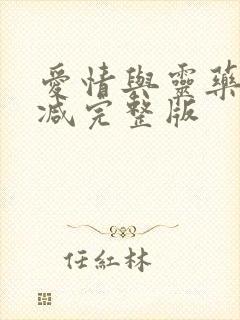 愛情與靈藥
減完整版
任紅林